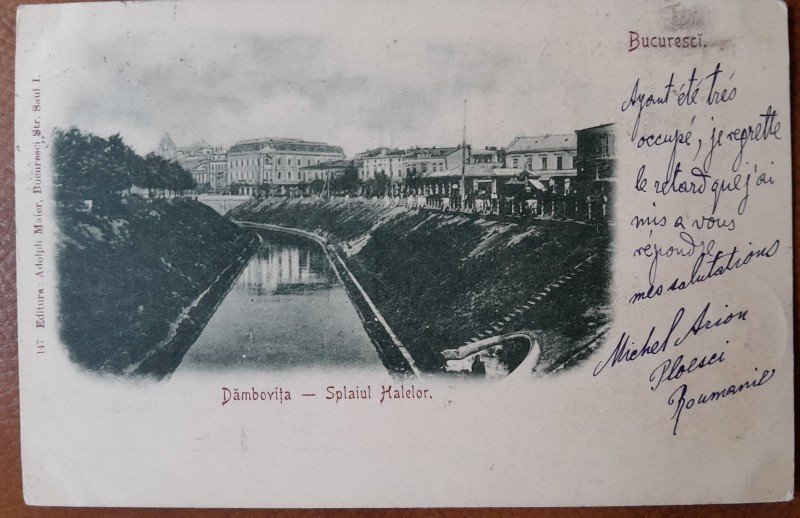 Bucuresci.
Ayant été trés
occupé, je regrette
le retard que j'ai
mis a vous
répondre
mes salutations
Michel Arion
Ploesci
Roumanie
Dămbovița — Splaiul Halelor.
147 Editura: Adolph Maier, Bucuresci Str. Saul I.